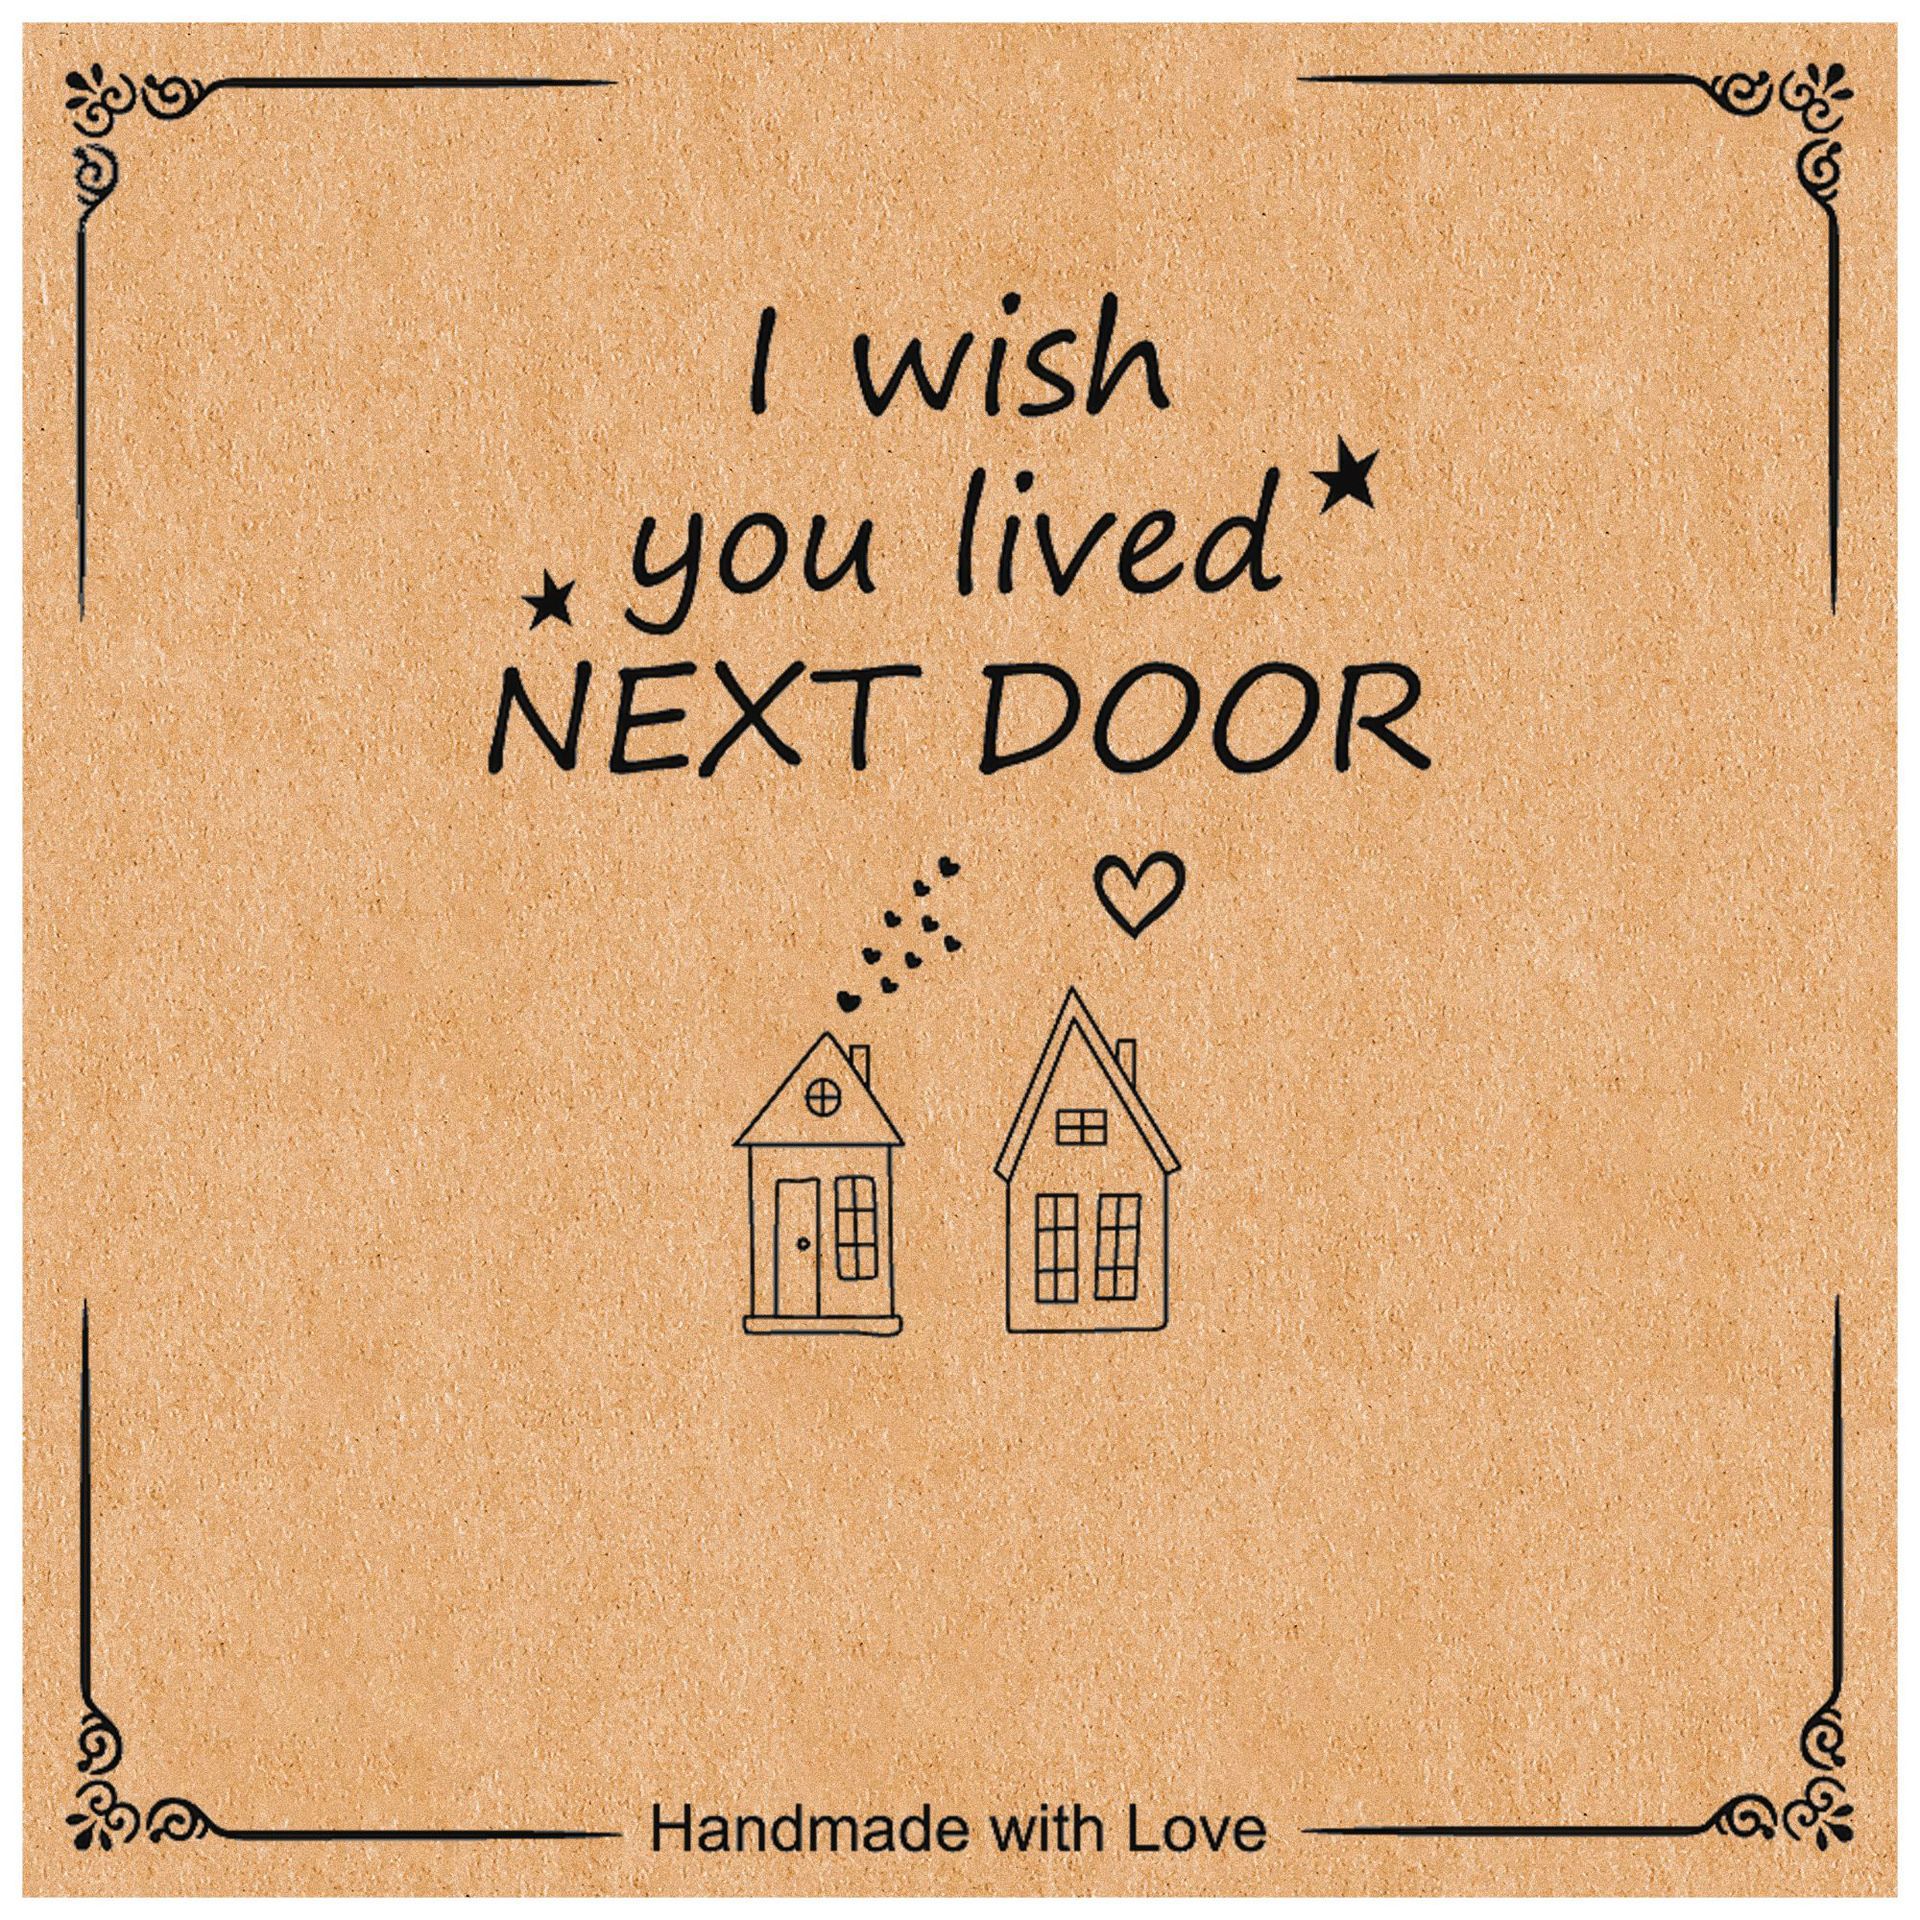 I wish
you lived
NEXT DOOR
Handmade with Love